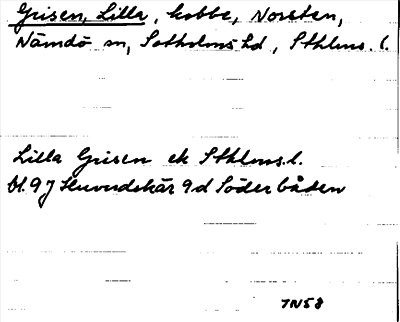 Grisen, Lilla, kobbe, Norsten,
Nämdö sn, Sotholms hd, Sthlms. l.
Lilla Grisen ek Sthlms. l.
bl. 9J Huvudskär 9d Söderbåden
7N58